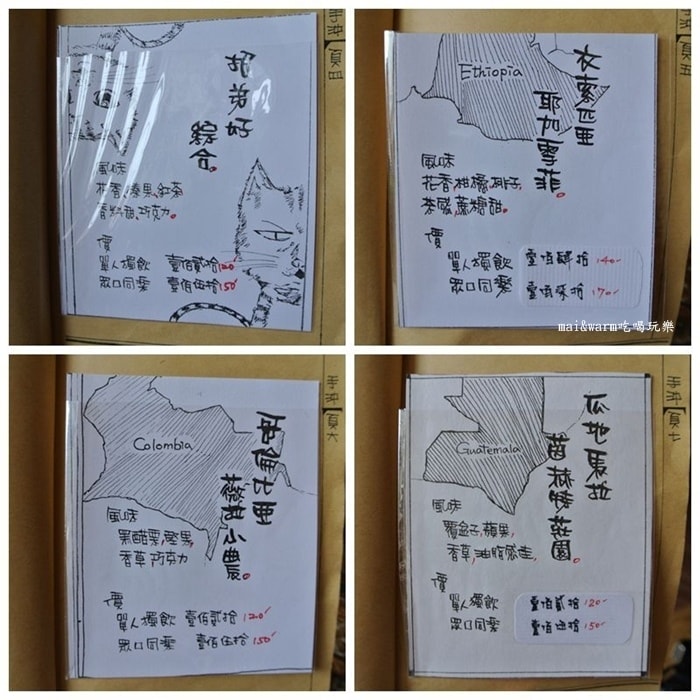 胡弟好
綜合。
風味
花香,榛果,紅茶
香料甜,巧克力。
價
單人獨飲 壹佰貳拾 120
眾口同樂 壹佰伍拾 150
頁四
Ethiopia
衣索匹亞
耶加雪菲。
風味
花香,柑橘,椰子,
茶感,蔗糖甜。
價
單人獨飲 壹佰肆拾 140
眾口同樂 壹佰柒拾 170
頁五
mai&warm吃喝玩樂
Colombia
哥倫比亞
薇拉小農。
風味
黑醋栗,堅果,
香草,巧克力
價
單人獨飲 壹佰貳拾 120
眾口同樂 壹佰伍拾 150
頁六
Guatemala
瓜地馬拉
莊園。
風味
覆盆子,蘋果,
香草,油脂感佳。
價
單人獨飲 壹佰貳拾 120
眾口同樂 壹佰伍拾 150
頁七